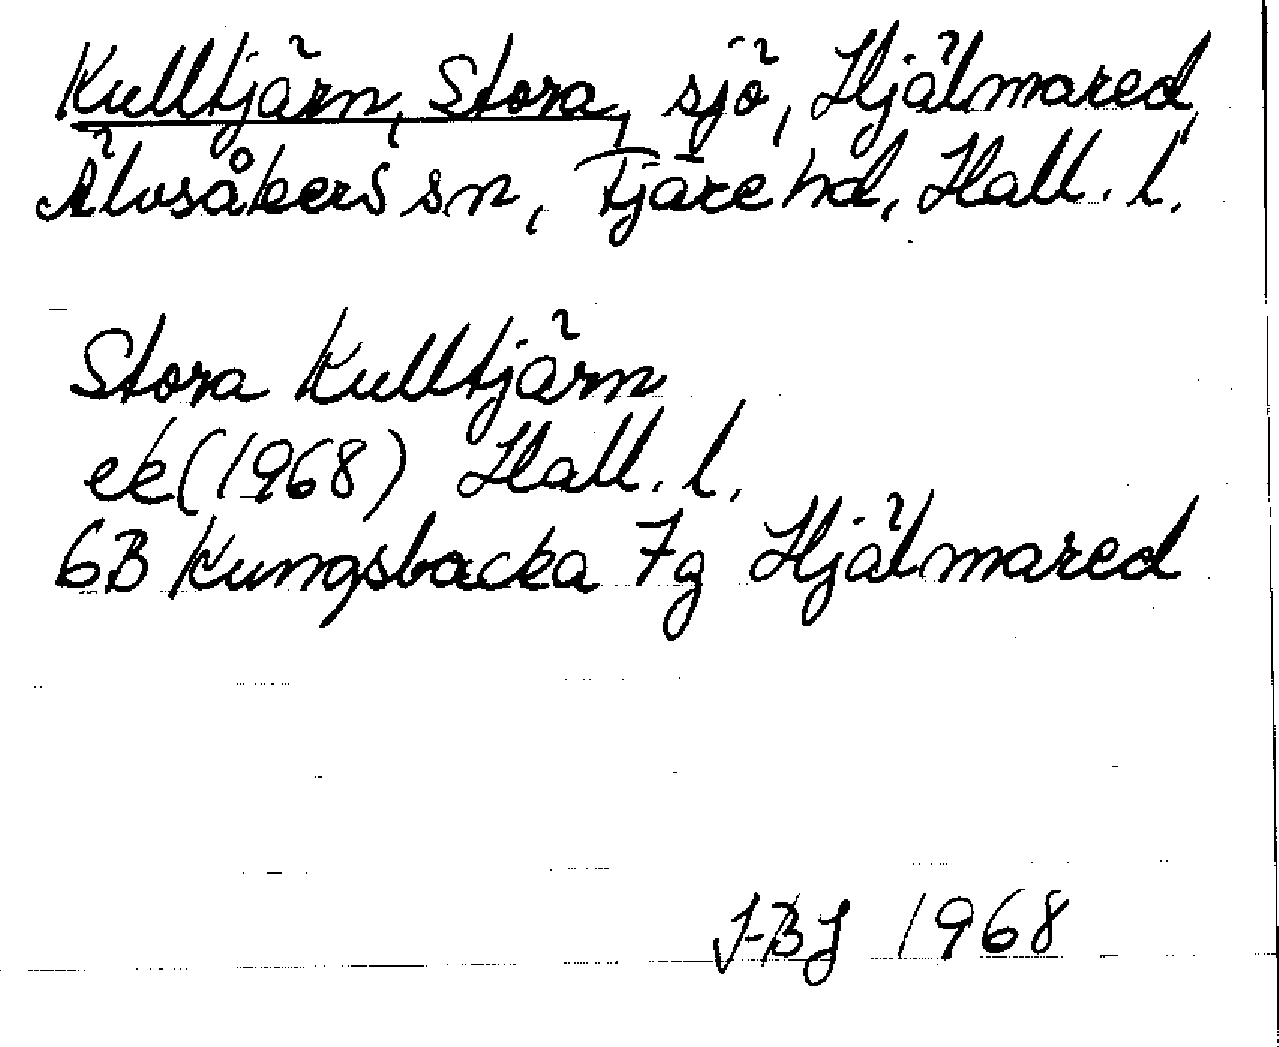 Kulltjärn, Stora, sjö, Hjälmared,
Älvsåkers sn, Fjäre hd, Hall. l.
Stora Kulltjärn
ek (1968) Hall. l.
6B Kungsbacka 7g Hjälmared
J-BJ 1968